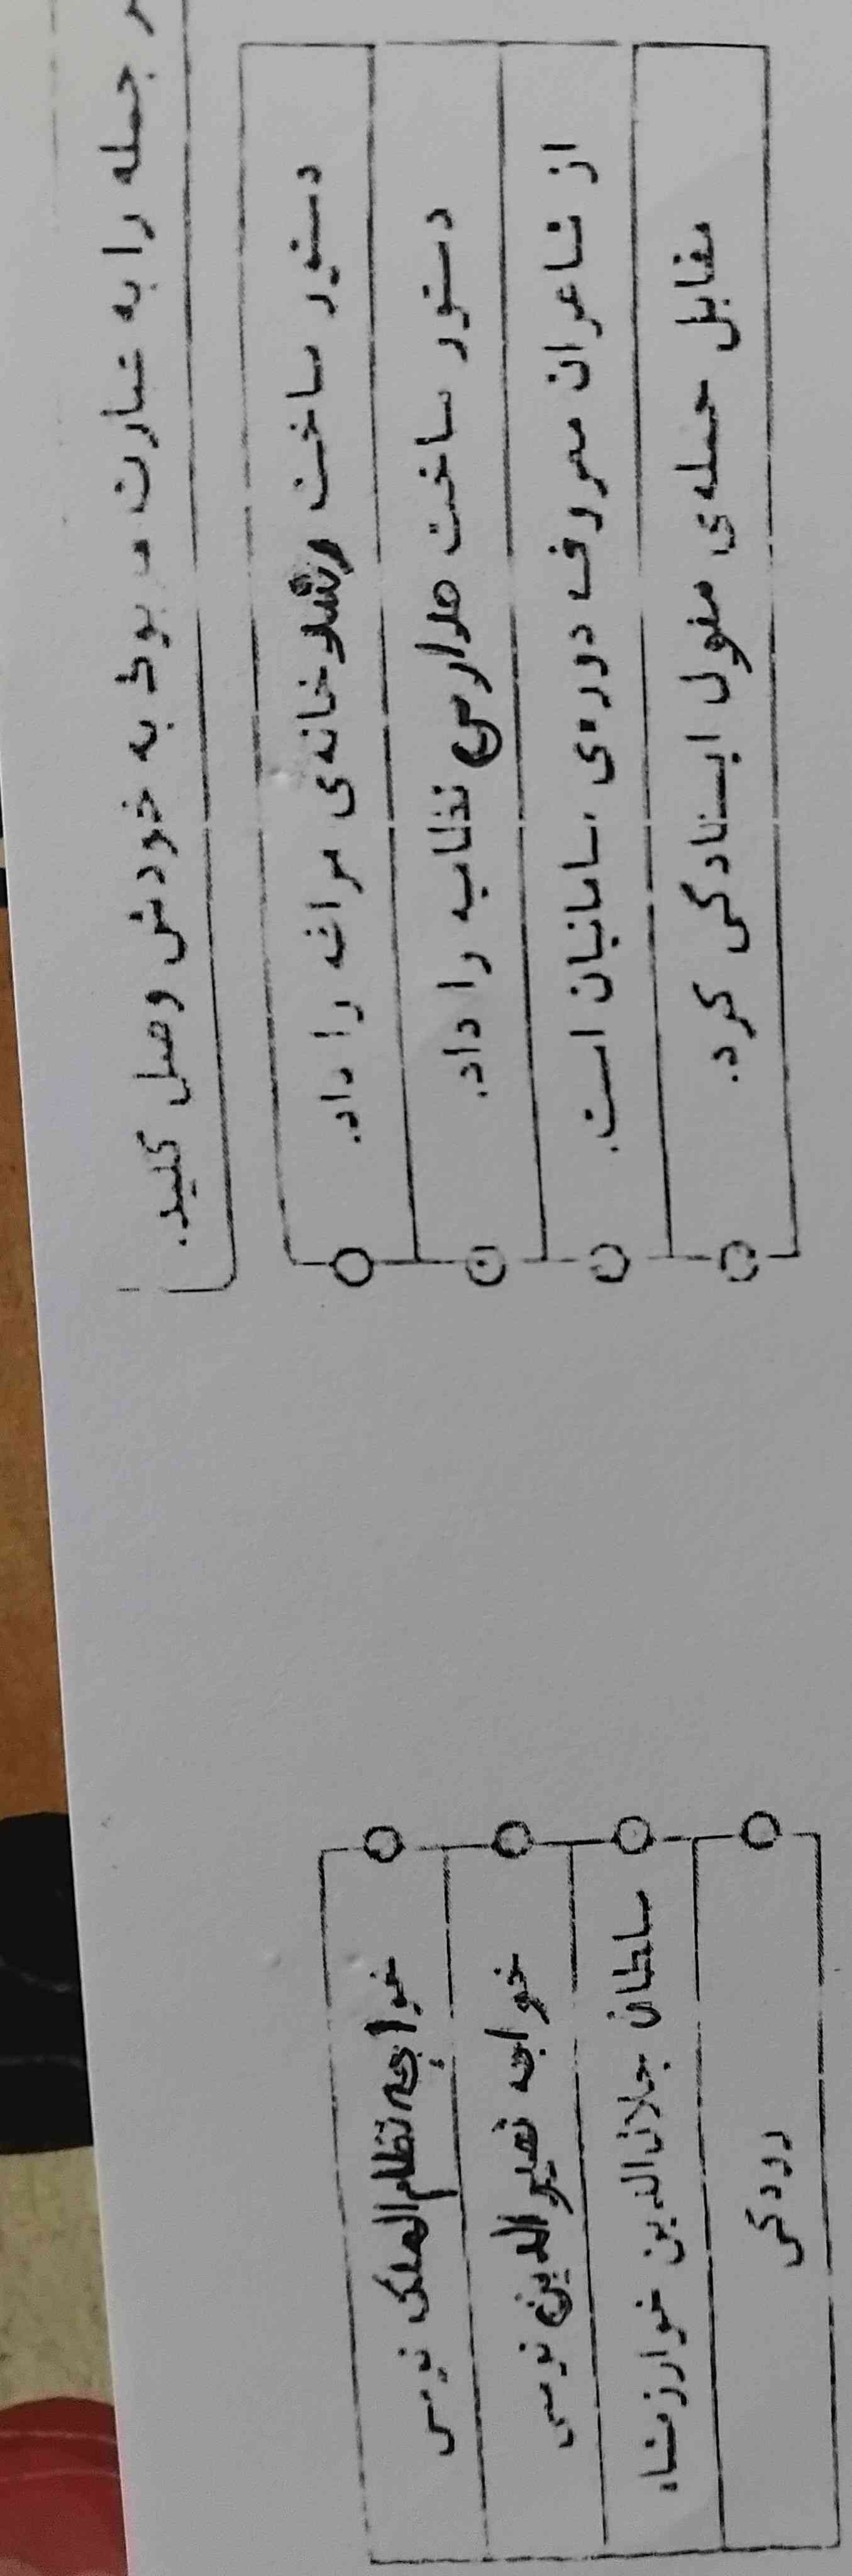 جمله را به عبارت مربوط به خودش وصل کنید.
دستور ساخت رصدخانه‌ی مراغه را داد.
دستور ساخت مدارس نظامیه را داد.
از شاعران معروف دوره‌ی سامانیان است.
مقابل حمله‌ی مغول ایستادگی کرد.
خواجه نظام الملک توسی
خواجه نصیرالدین توسی
سلطان جلال الدین خوارزمشاه
رودکی